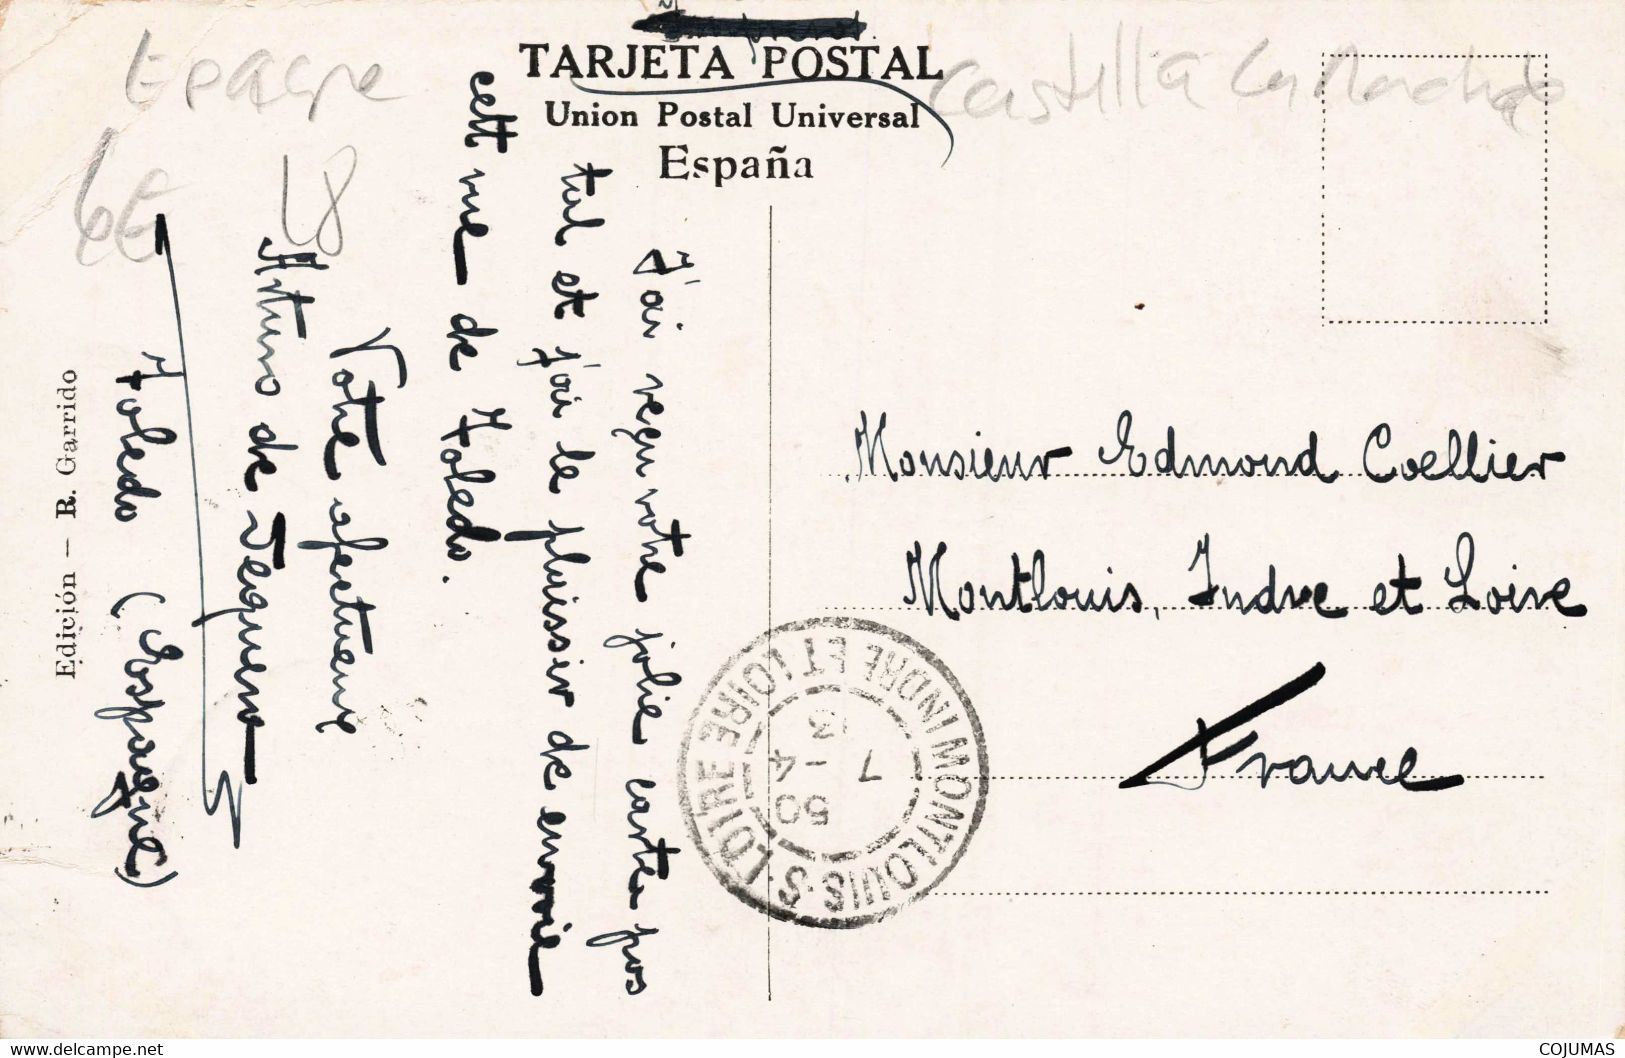 TARJETA POSTAL
Union Postal Universal
España
Espagne
Castilla La Mancha
6E
L8
J'ai reçu votre jolie carte pos
tal et j'ai le plaissir de envoie
cett vue de Toledo.
Votre afectueux
Arturo de
Toledo (Espagne)
Edición — R. Garrido
Monsieur Edmond Coellier
Montlouis, Indre et Loire
France
MONTLOUIS-S-LOIRE
INDRE ET LOIRE
50
7 - 4
13
www.delcampe.net
COJUMAS